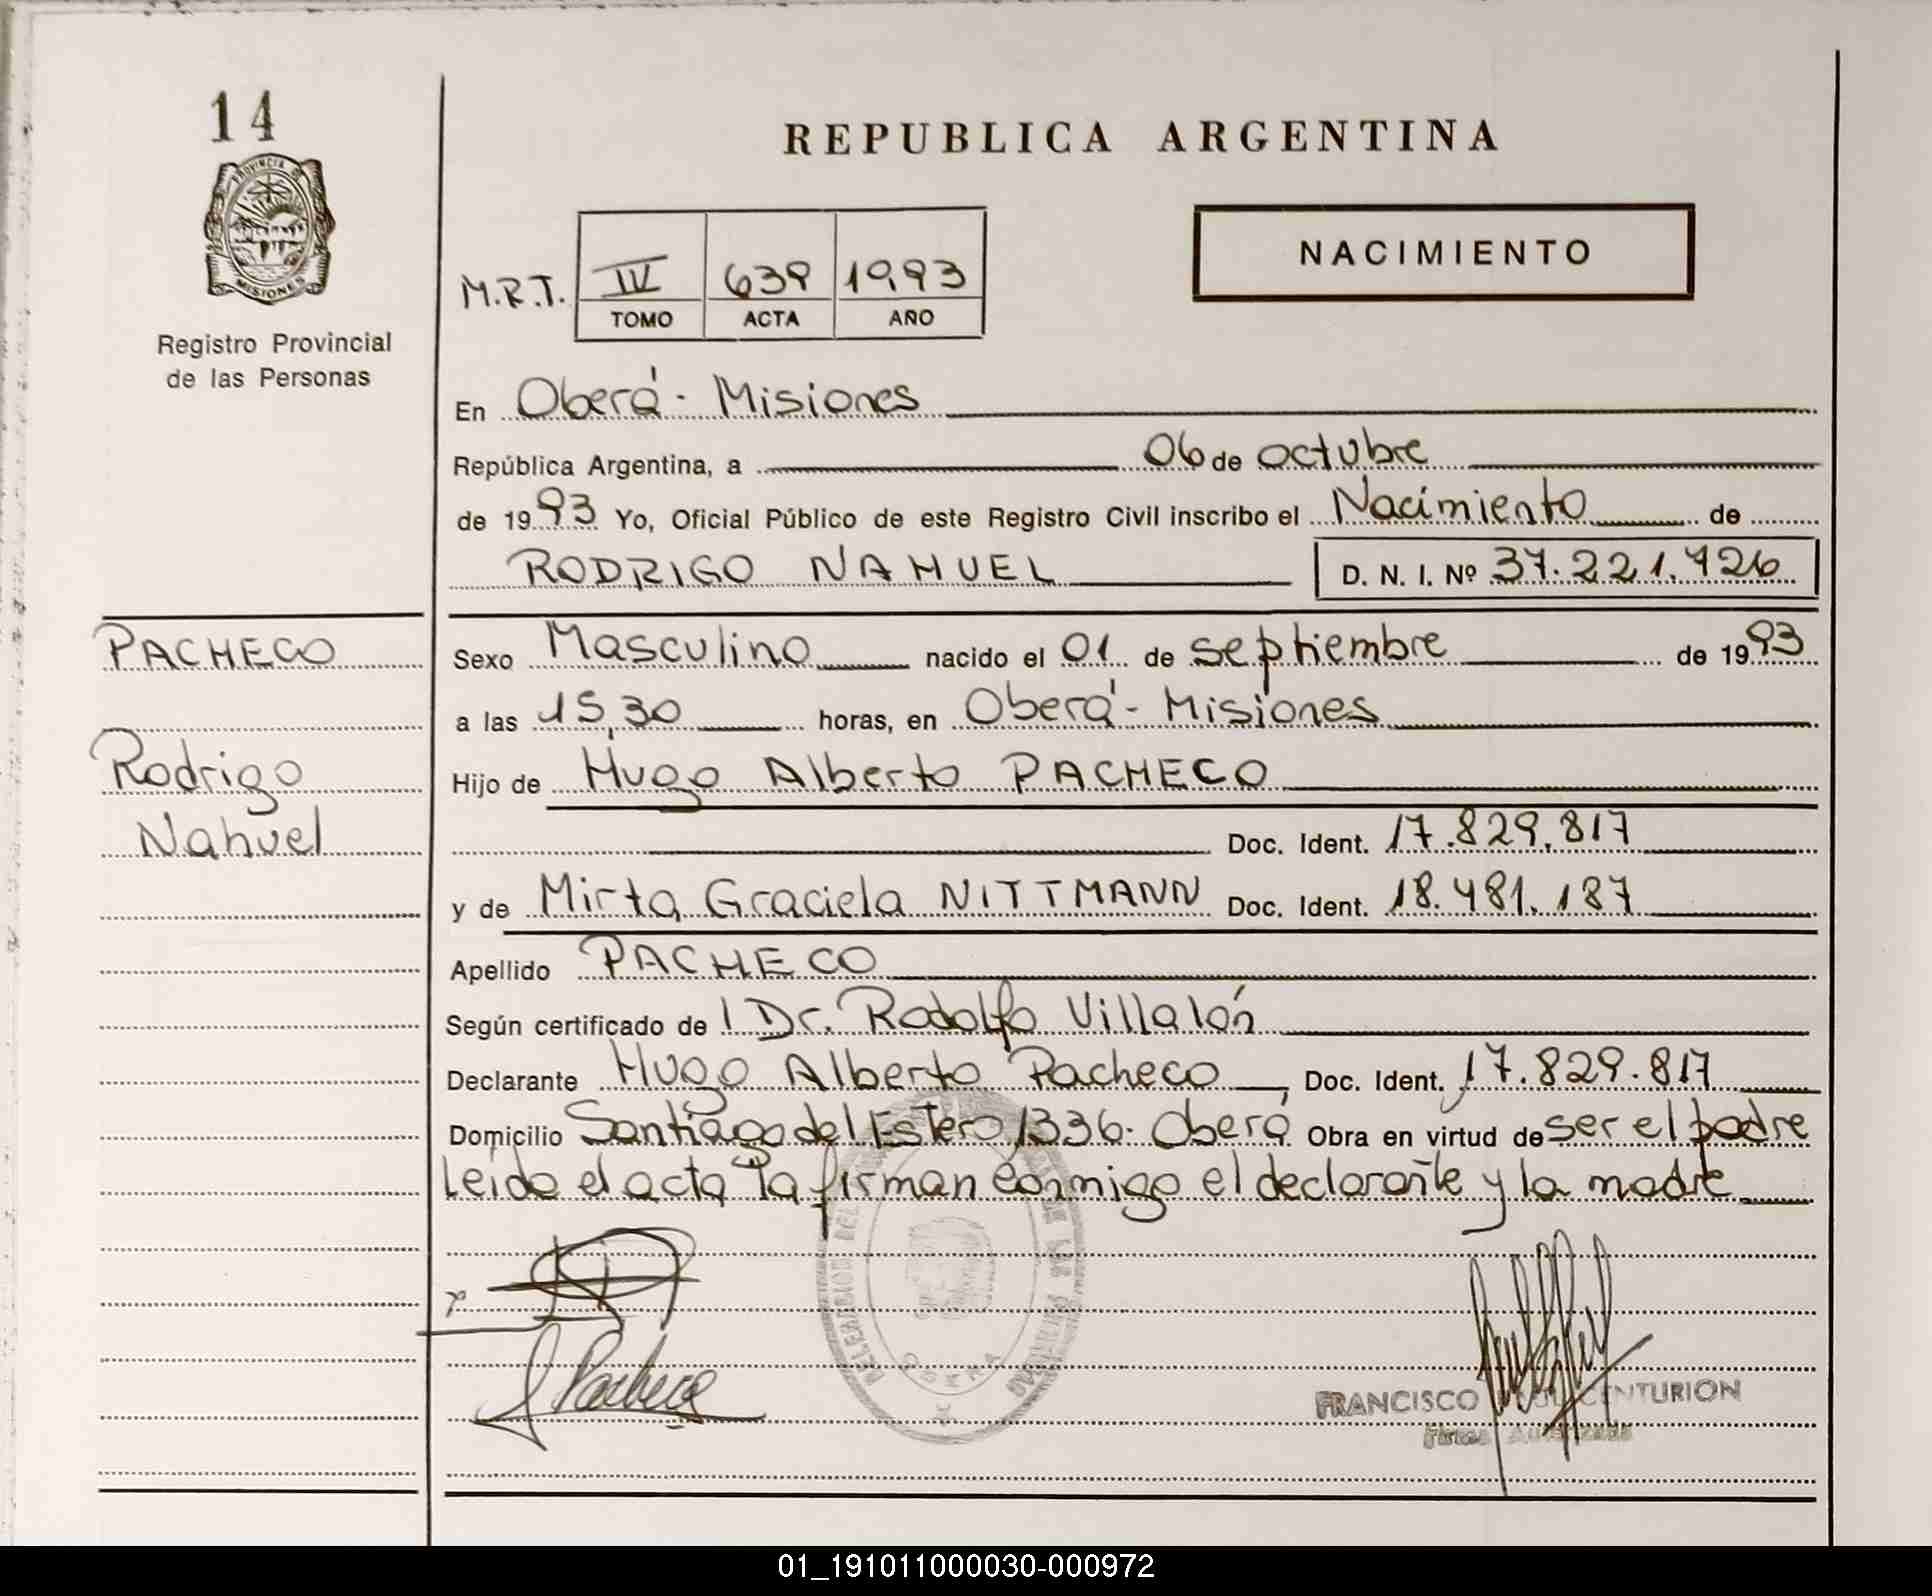 14
REPUBLICA ARGENTINA
PROVINCIA DE
MISIONES
NACIMIENTO
M.R.T. IV 639 1993
TOMO ACTA AÑO
Registro Provincial
de las Personas
En Oberá - Misiones
República Argentina, a 06 de octubre
de 1993 Yo, Oficial Público de este Registro Civil inscribo el Nacimiento de
RODRIGO NAHUEL D. N. I. Nº 37.221.726
PACHECO
Sexo Masculino nacido el 01 de septiembre de 1993
a las 15,30 horas, en Oberá - Misiones
Rodrigo
Hijo de Hugo Alberto PACHECO
Nahuel
Doc. Ident. 17.829.817
y de Mirta Graciela NITTMANN Doc. Ident. 18.481.187
Apellido PACHECO
Según certificado de l Dr. Rodolfo Villalón
Declarante Hugo Alberto Pacheco, Doc. Ident. 17.829.817
Domicilio Santiago del Estero 1336 - Oberá Obra en virtud de ser el padre
Leída el acta la firman conmigo el declarante y la madre
Pacheco
FRANCISCO CENTURION
Firma Autorizada
01_191011000030-000972